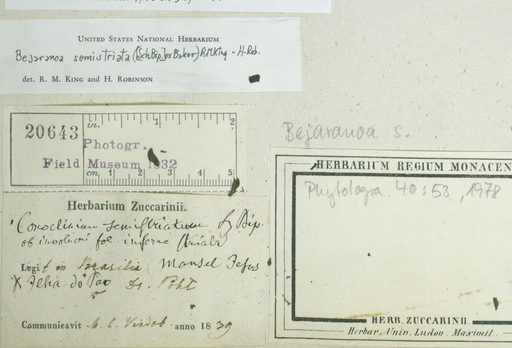 UNITED STATES NATIONAL HERBARIUM
Bejaranoa semistriata (Sch.Bip. ex Baker) R.M.King - H.Rob.
det. R. M. KING and H. ROBINSON
20643
in. 1 2
Photogr.
Field Museum 1932
cm 1 2 3 4 5
Bejaranoa s.
HERBARIUM REGIUM MONACEN
Phytologia 40:53, 1978
Herbarium Zuccarinii.
Conoclinium semistriatum Sz Bip.
ob involucri fol. inferne striata
Legit in Brasilia (Mansel Jesus
X Ilha do Pao Dr. Pohl
Communicavit M. C. Vindob. anno 1839
HERB. ZUCCARINII
Herbar. Univ. Ludov. Maximil.